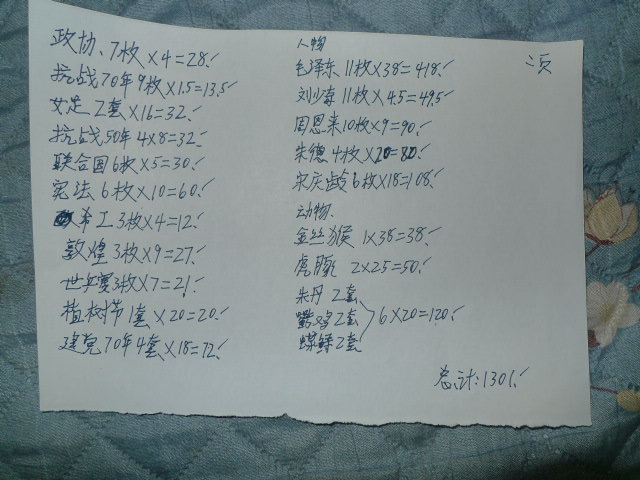 政协、7枚×4=28.✓
抗战70年9枚×1.5=13.5✓
女足2套×16=32.✓
抗战50年4×8=32✓
联合国6枚×5=30.✓
宪法6枚×10=60.✓
军工3枚×4=12.✓
敦煌3枚×9=27.✓
世乒赛3枚×7=21.✓
植树节1套×20=20.✓
建党70年4套×18=72.✓
人物
毛泽东11枚×38=418.✓
刘少奇11枚×4.5=49.5✓
周恩来10枚×9=90.✓
朱德4枚×20=80.✓
宋庆龄6枚×18=108.✓
动物.
金丝猴1×38=38.✓
虎豚2×25=50.✓
牡丹2套
鹮鸡2套 6×20=120.✓
蝶鲟2套
总计:1301.✓